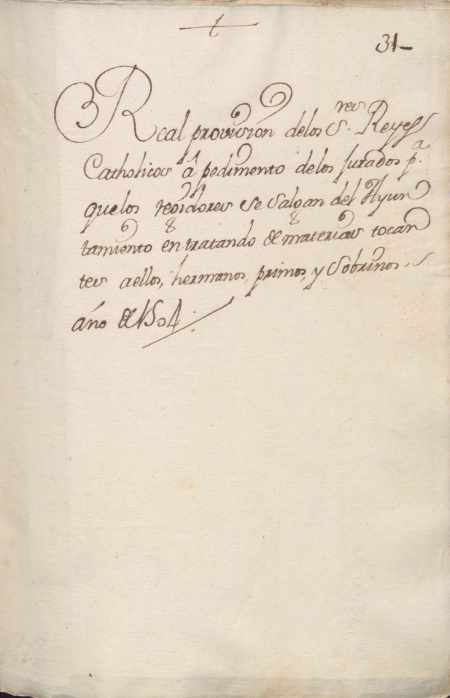 31
Real provision delos S.res Reyes
Catholicos á pedimento delos Jurados p.a
quelos rexidores se salgan del Ayun
tamiento en tratando de materias tocan
tes aellos, hermanos, primos, y sobrinos.
año de 1504.